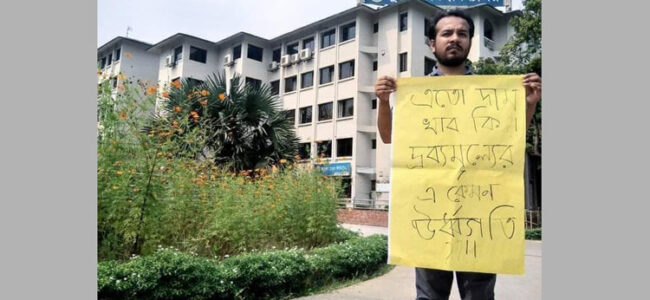 এতো দাম
খাব কি।
দ্রব্যমূল্যের
এ কেমন
ঊর্ধ্বগতি
!!